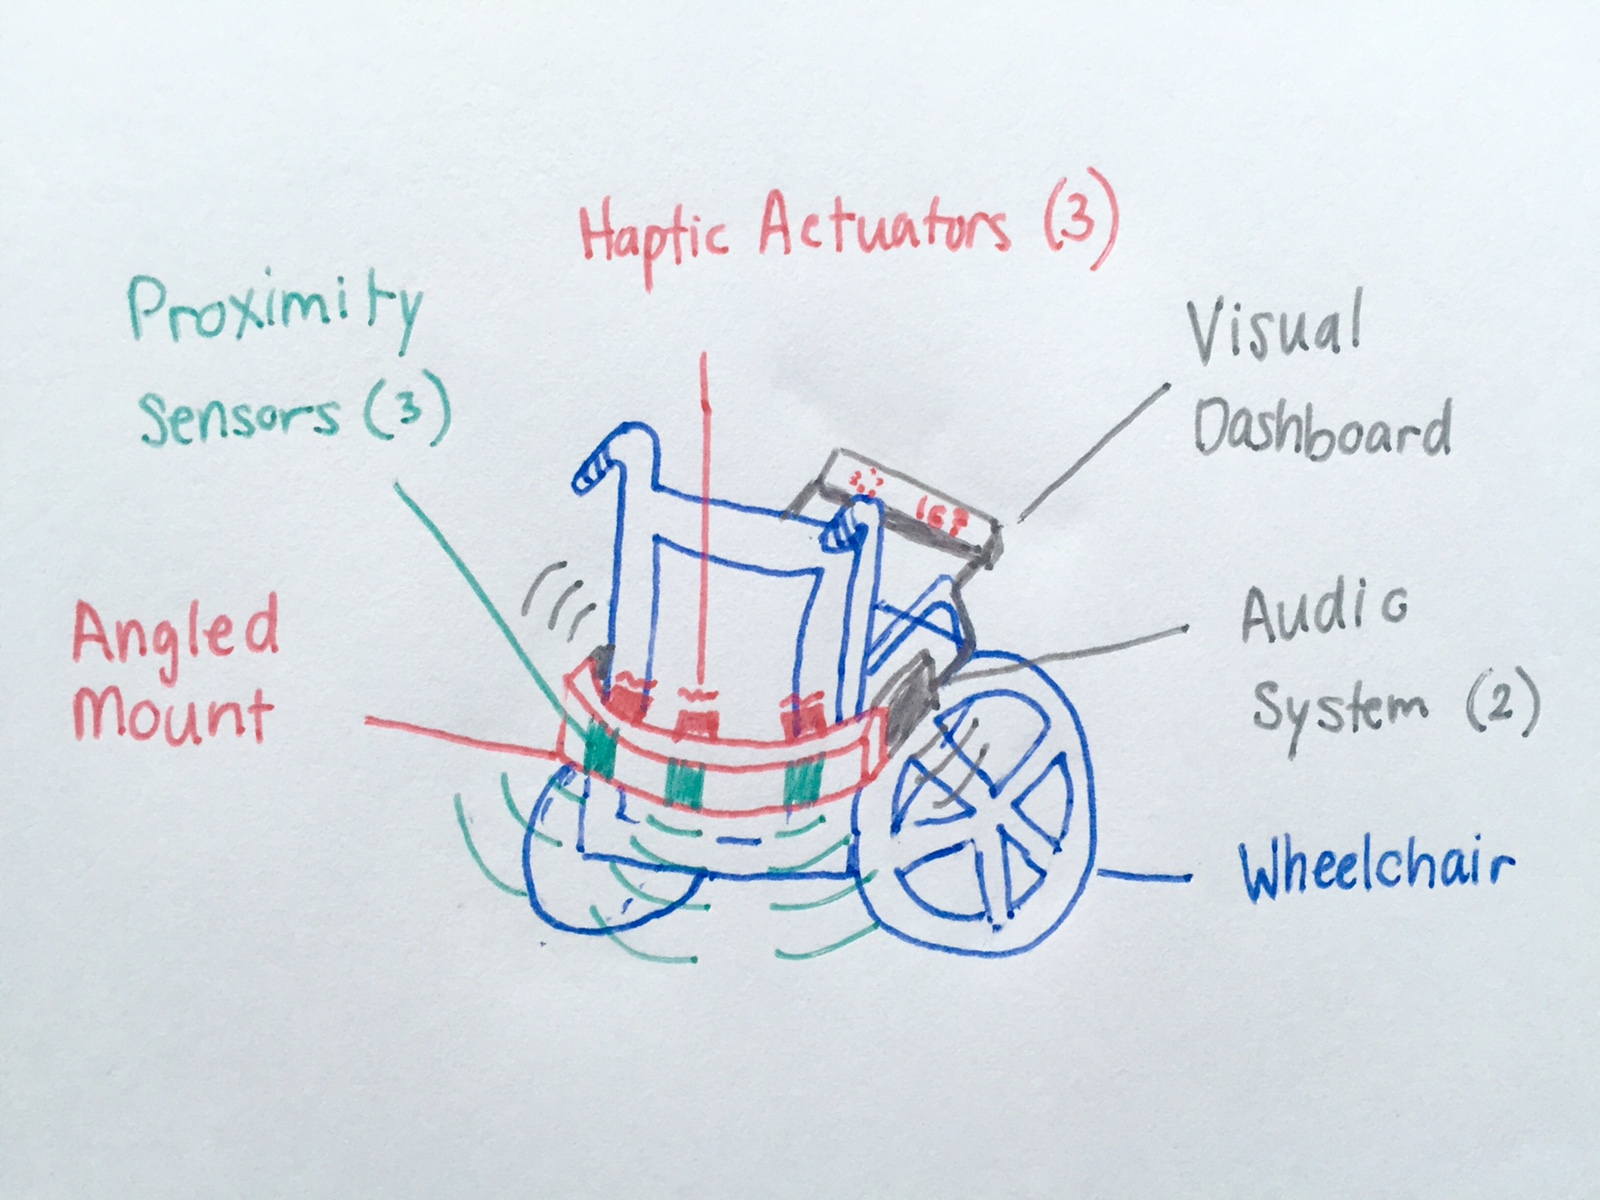 Haptic Actuators (3)
Proximity
Sensors (3)
Visual
Dashboard
Angled
Mount
Audio
System (2)
Wheelchair